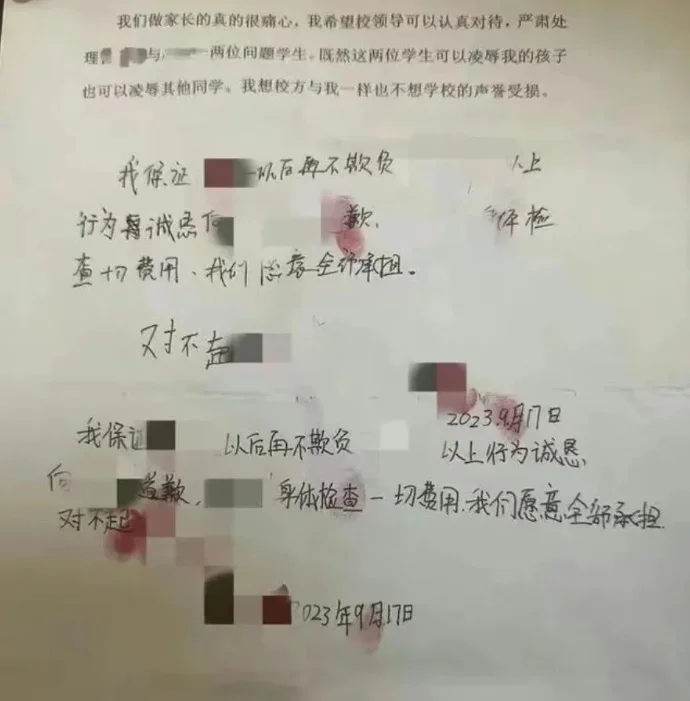 我们做家长的真的很痛心，我希望校领导可以认真对待，严肃处
理 与 两位问题学生。既然这两位学生可以凌辱我的孩子
也可以凌辱其他同学。我想校方与我一样也不想学校的声誉受损。
我保证 以后再不欺负 上
行为 诚恳向 歉, 体检
查一切费用、我们愿意全部承担。
对不起
2023.9月17日
我保证 以后再不欺负 以上行为诚恳
向 道歉, 身体检查一切费用,我们愿意全部承担
对不起
2023年9月17日